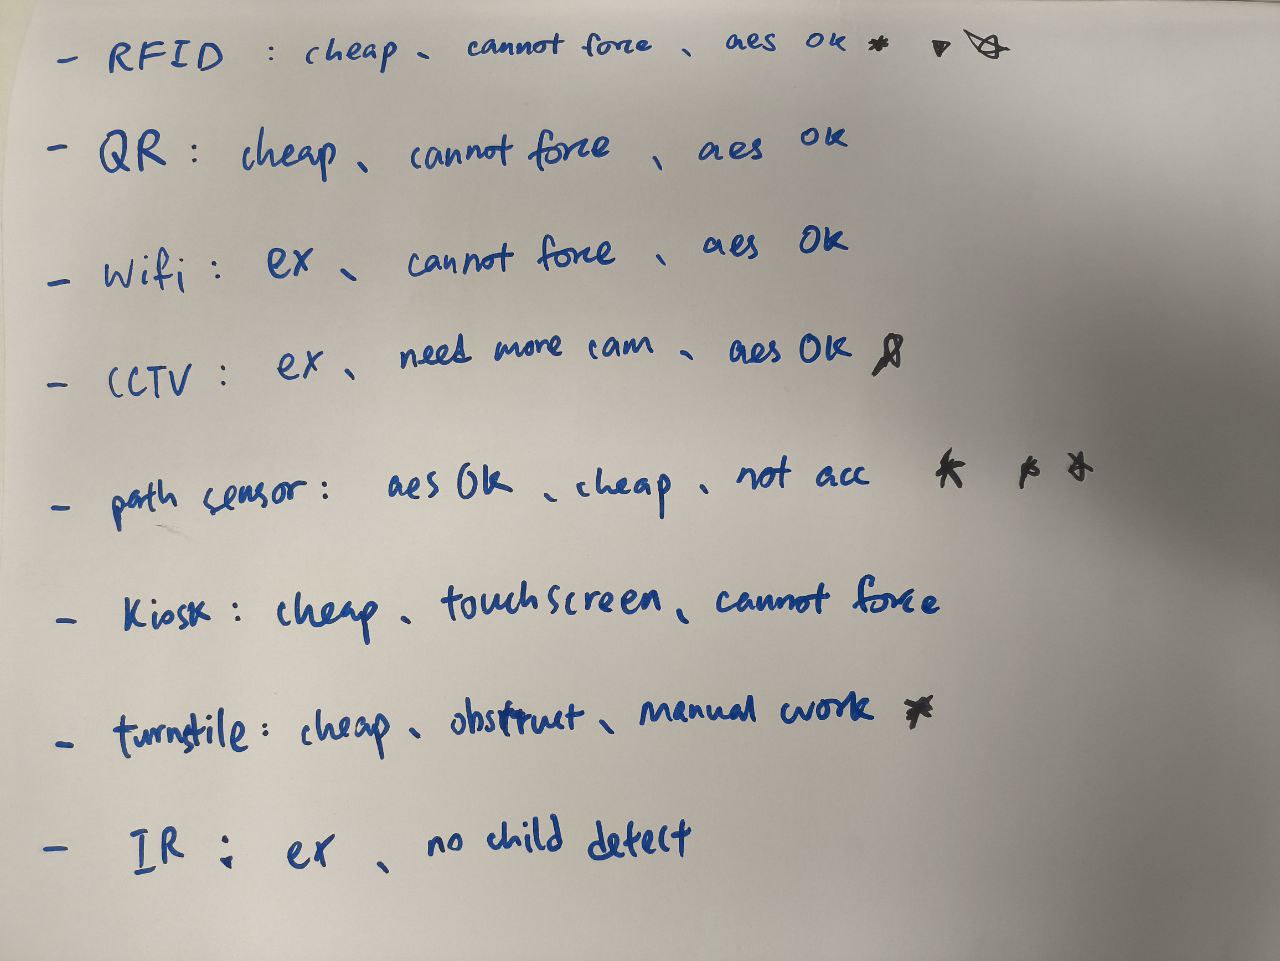 - RFID : cheap、cannot force、aes ok *
- QR : cheap、cannot force、aes ok
- Wifi : ex、cannot force、aes OK
- CCTV : ex、need more cam、aes OK
- path sensor : aes OK、cheap、not acc *
- Kiosk : cheap、touchscreen、cannot force
- turnstile : cheap、obstruct、manual work *
- IR : ex、no child detect